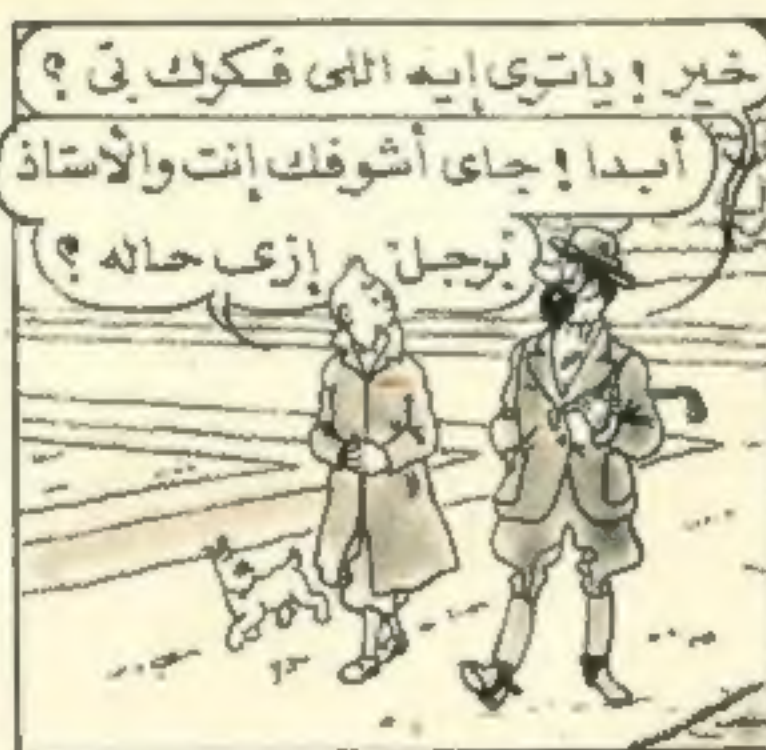 خير ! ياترى إيه اللى فكرك بى ؟
أبدا ! جاى أشوفك إنت والأستاذ
برجل إزى حاله ؟